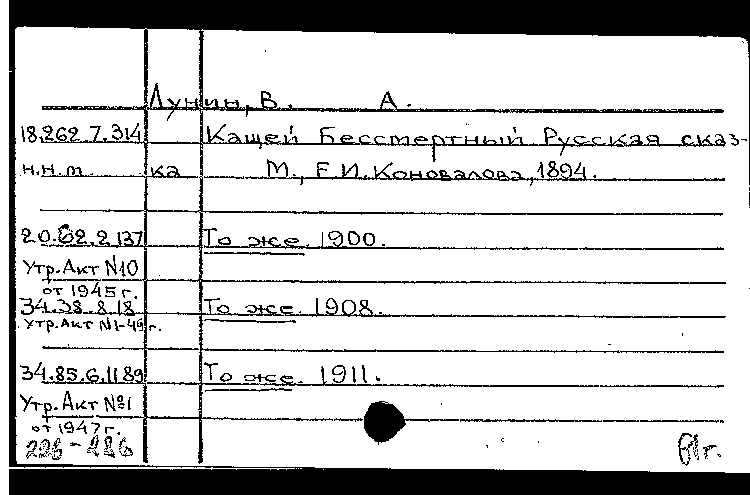 Лунин, В. А.
18.262.7.314 Кащей Бессмертный Русская сказ-
н.н.т ка М., Е.И. Коновалова, 1894.
20.62.2.137 То же. 1900.
Утр. Акт N10
от 1945 г.
34.38.8.18 То же. 1908.
Утр. Акт N1-49 г.
34.85.6.1189 То же. 1911.
Утр. Акт №1
от 1947 г.
61г.